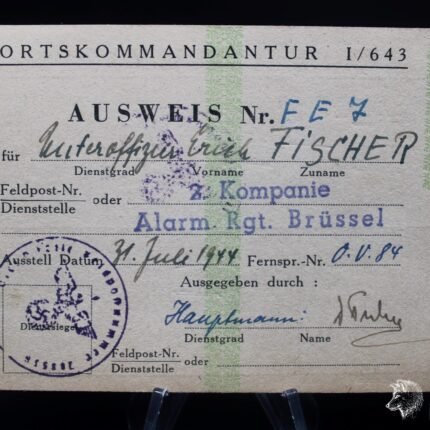 ORTSKOMMANDANTUR I/643
AUSWEIS Nr. FE7
für Unteroffizier Erich FISCHER
Dienstgrad Vorname Zuname
Feldpost-Nr. oder 2. Kompanie
Dienststelle
Alarm Rgt. Brüssel
Ausstell Datum 31. Juli 1944 Fernspr.-Nr. O.V. 84
Ausgegeben durch :
Hauptmann:
Dienstgrad Name
Dienstsiegel
Feldpost-Nr. oder
Dienststelle